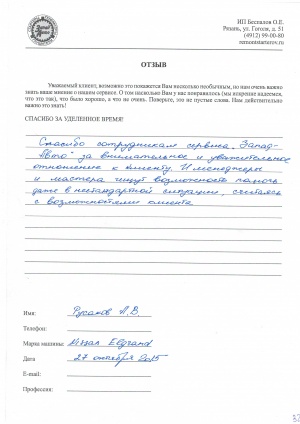 ИП Беспалов О.Е.
Рязань, ул. Гоголя, д. 51
(4912) 99-00-80
remontstarterov.ru
ОТЗЫВ
Уважаемый клиент, возможно это покажется Вам несколько необычным, но нам очень важно
знать ваше мнение о нашем сервисе. О том насколько Вам у нас понравилось (мы искренне надеемся,
что это так), что было хорошо, а что не очень. Поверьте, это не пустые слова. Нам действительно
важно это знать!
СПАСИБО ЗА УДЕЛЕННОЕ ВРЕМЯ!
Спасибо сотрудникам сервиса „Запад-
Авто" за внимательное и уважительное
отношение к клиенту. И менеджеры
и мастера ищут возможность помочь
даже в нестандартной ситуации, считаясь
с возможностями клиента
Имя: Русаков А.В.
Телефон:
Марка машины: Nissan Elgrand
Дата 27 октября 2015
E-mail:
Профессия: